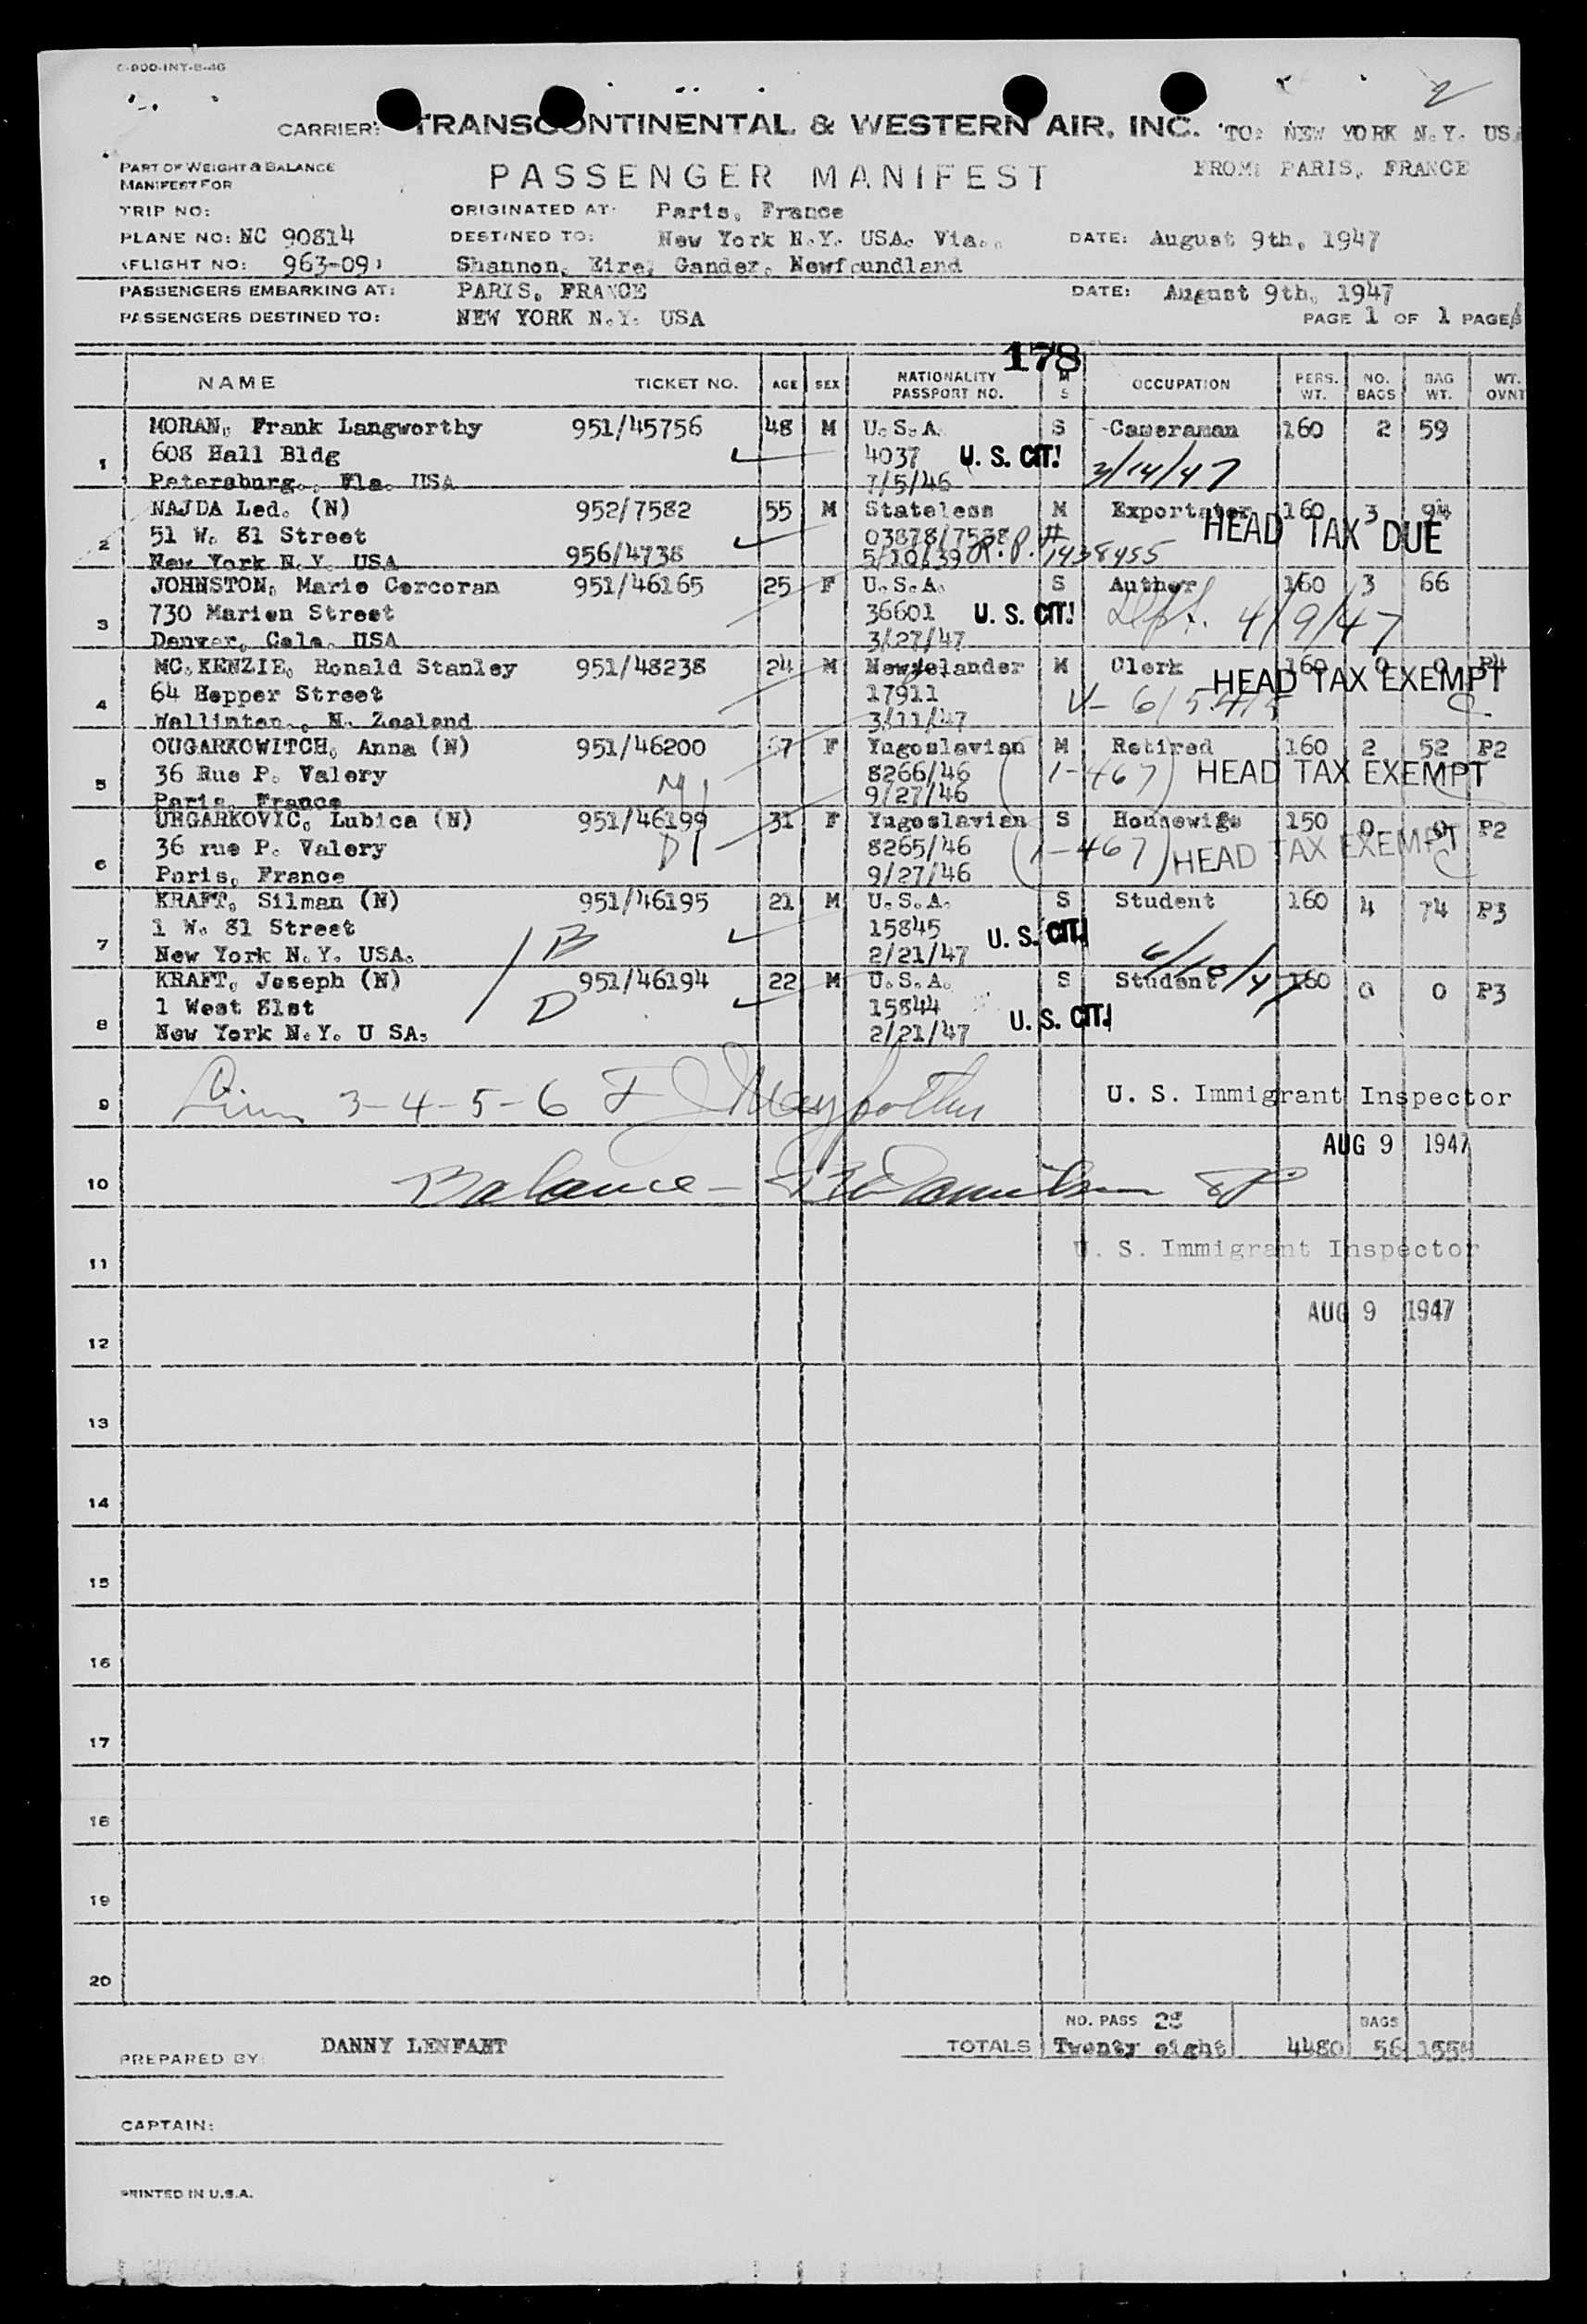 C-900-INV-8-46
2
CARRIER: TRANSCONTINENTAL & WESTERN AIR, INC. TO: NEW YORK N.Y. USA
PART OF WEIGHT & BALANCE
MANIFEST FOR
PASSENGER MANIFEST FROM: PARIS, FRANCE
TRIP NO: ORIGINATED AT: Paris, France
PLANE NO: NC 90814 DESTINED TO: New York N.Y. USA. Via.. DATE: August 9th, 1947
FLIGHT NO: 963-09 Shannon, Eire, Gander, Newfoundland
PASSENGERS EMBARKING AT: PARIS, FRANCE DATE: August 9th, 1947
PASSENGERS DESTINED TO: NEW YORK N.Y. USA PAGE 1 OF 1 PAGES
178
NAME TICKET NO. AGE SEX NATIONALITY PASSPORT NO. M S OCCUPATION PERS. WT. NO. BAGS BAG WT. WT. OVNT
MORAN, Frank Langworthy 951/45756 48 M U.S.A. S Cameraman 160 2 59
1 608 Hall Bldg 4037 U. S. CIT. 3/14/47
Petersburg., Fla. USA 7/5/46
NAJDA Led. (N) 952/7582 55 M Stateless M Exportater 160 3 94
2 51 W. 81 Street 03878/7538 R.P.# HEAD TAX DUE
New York N.Y. USA 956/4738 5/10/39 1938955
JOHNSTON, Marie Corcoran 951/46165 25 F U.S.A. S Auther 160 3 66
3 730 Marien Street 36601 U. S. CIT. Dept. 4/9/47
Denver, Cola. USA 3/27/47
MC.KENZIE, Ronald Stanley 951/48238 24 M Newzelander M Clerk 160 0 0 P4
4 64 Hepper Street 17911 HEAD TAX EXEMPT
Wallinton., N. Zealand 3/11/47
OUGARKOWITCH, Anna (N) 951/46200 67 F Yugoslavian M Retired 160 2 52 P2
5 36 Rue P. Valery 8266/46 (1-467) HEAD TAX EXEMPT
Paris, France 9/27/46
URGARKOVIC, Lubica (N) 951/46199 31 F Yugoslavian S Housewife 150 0 0 P2
6 36 rue P. Valery 8265/46 (1-467) HEAD TAX EXEMPT
Paris, France 9/27/46
KRAFT, Silman (N) 951/46195 21 M U.S.A. S Student 160 4 74 P3
7 1 W. 81 Street 15845 U. S. CIT.
New York N.Y. USA. B 2/21/47 6/10/47
KRAFT, Joseph (N) 951/46194 22 M U.S.A. S Student 160 0 0 P3
8 1 West 81st D 15844 U. S. CIT.
New York N.Y. U SA. 2/21/47
9 3-4-5-6 U. S. Immigrant Inspector
AUG 9 1947
10 Balance -
11 U. S. Immigrant Inspector
AUG 9 1947
12
13
14
15
16
17
18
19
20
NO. PASS 28 BAGS
PREPARED BY: DANNY LENFAHT TOTALS Twenty eight 4480 56 1554
CAPTAIN:
PRINTED IN U.S.A.